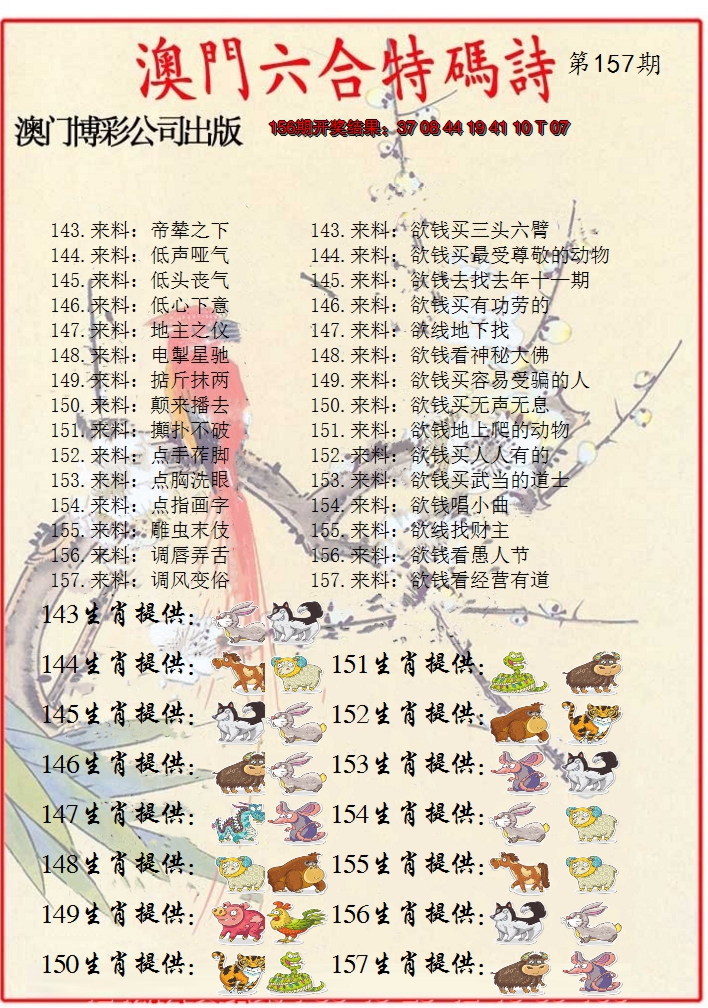 澳門六合特碼詩 第157期
澳门博彩公司出版 156期开奖结果：37 08 44 19 41 10 T 07
143.来料：帝辇之下 143.来料：欲钱买三头六臂
144.来料：低声哑气 144.来料：欲钱买最受尊敬的动物
145.来料：低头丧气 145.来料：欲钱去找去年十一期
146.来料：低心下意 146.来料：欲钱买有功劳的
147.来料：地主之仪 147.来料：欲线地下找
148.来料：电掣星驰 148.来料：欲钱看神秘大佛
149.来料：掂斤抹两 149.来料：欲钱买容易受骗的人
150.来料：颠来播去 150.来料：欲钱买无声无息
151.来料：攧扑不破 151.来料：欲钱地上爬的动物
152.来料：点手莋脚 152.来料：欲钱买人人有的
153.来料：点胸洗眼 153.来料：欲钱买武当的道士
154.来料：点指画字 154.来料：欲钱唱小曲
155.来料：雕虫末伎 155.来料：欲线找财主
156.来料：调唇弄舌 156.来料：欲钱看愚人节
157.来料：调风变俗 157.来料：欲钱看经营有道
143生肖提供：
144生肖提供： 151生肖提供：
145生肖提供： 152生肖提供：
146生肖提供： 153生肖提供：
147生肖提供： 154生肖提供：
148生肖提供： 155生肖提供：
149生肖提供： 156生肖提供：
150生肖提供： 157生肖提供：